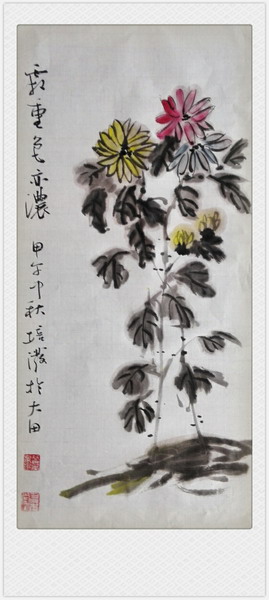 霜重色亦濃
甲午中秋培潑於大田